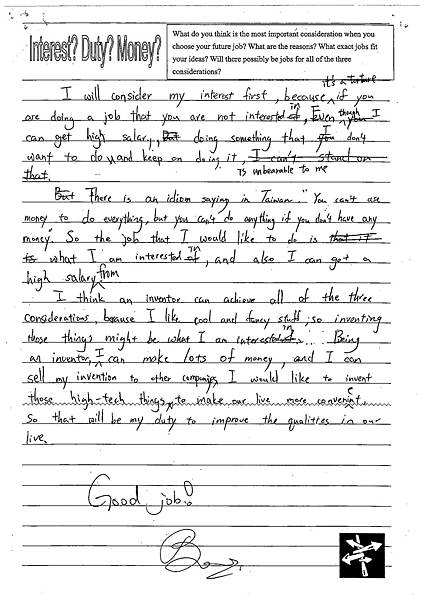 Interest? Duty? Money?
What do you think is the most important consideration when you
choose your future job? What are the reasons? What exact jobs fit
your ideas? Will there possibly be jobs for all of the three
considerations?
it's a torture
I will consider my interest first, because if you
are doing a job that you are not interested in, Even though I
can get high salary, But doing something that I don't
want to do, and keep on doing it, I can't stand on
is unbearable to me
that.
But There is an idiom saying in Taiwan. "You can't use
money to do everything, but you can't do anything if you don't have any
money". So the job that I would like to do is that it
is what I am interested in, and also I can get a
high salary from
I think an inventor can achieve all of the three
considerations, because I like cool and fancy stuff, so inventing
those things might be what I am interested in... Being
an inventor, I can make lots of money, and I can
sell my invention to other companies, I would like to invent
those high-tech things, to make our live more convenient.
So that will be my duty to improve the qualities in our
live.
Good job!